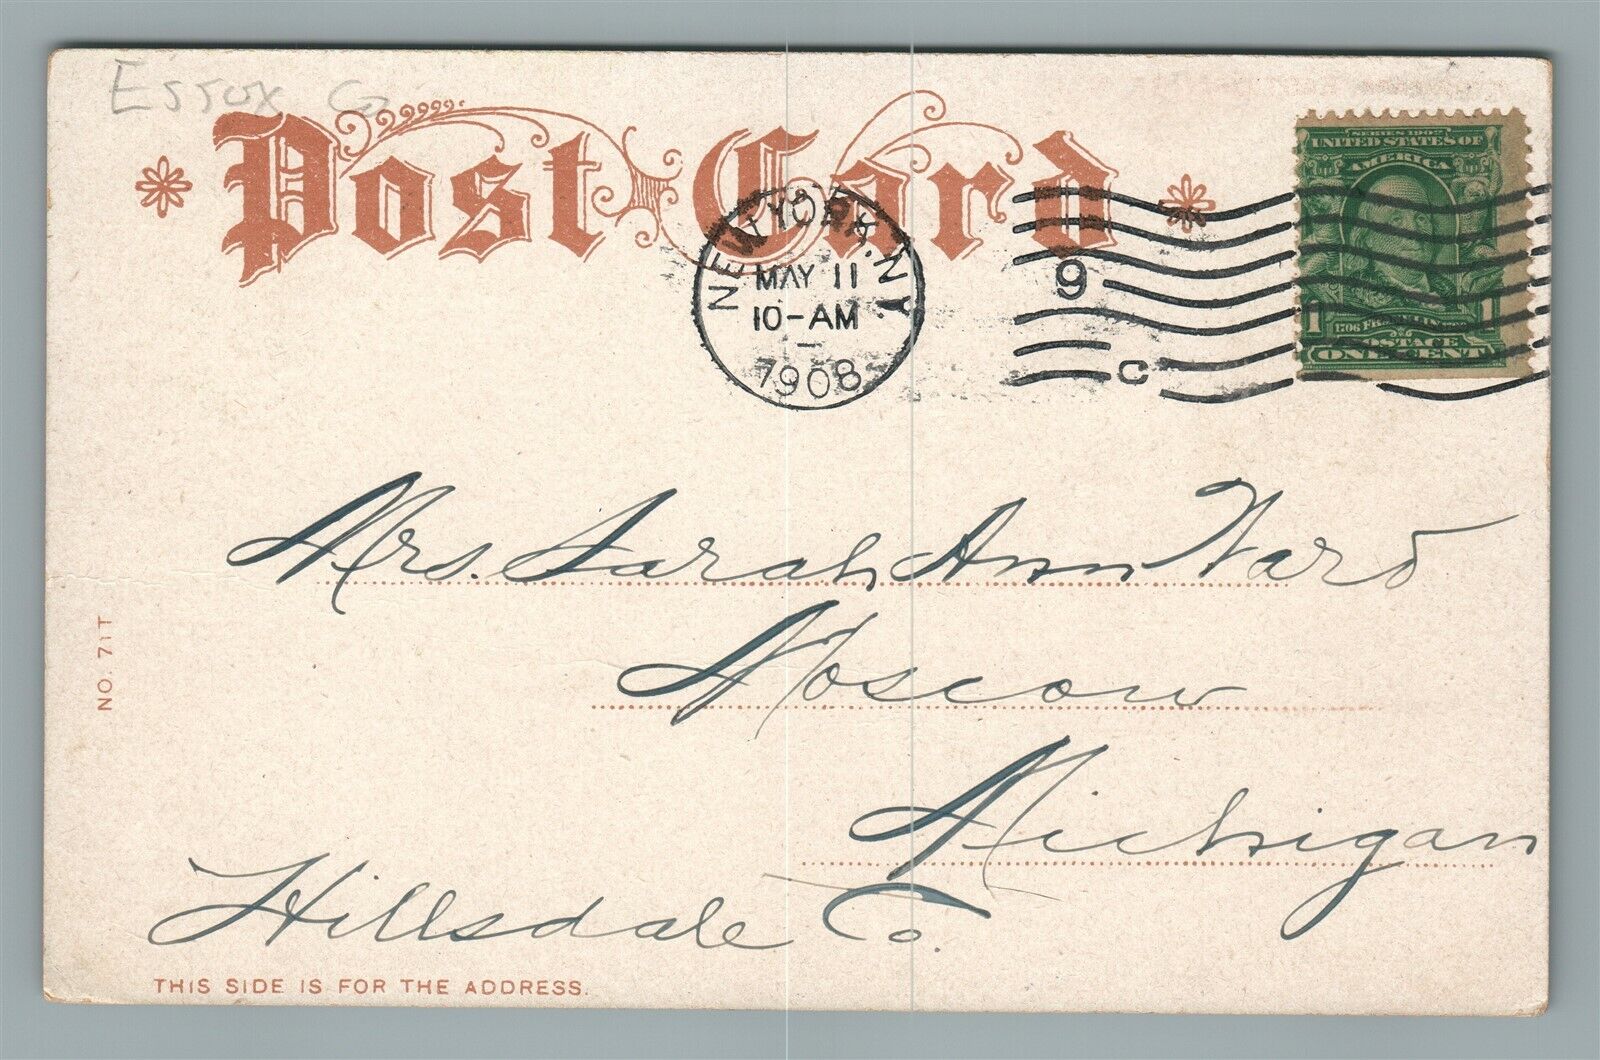 Essex Co
Post Card
NEW YORK, N.Y.
MAY 11
10-AM
1908
9
C
SERIES 1902
UNITED STATES OF
AMERICA
1 1706 FRANKLIN 1
POSTAGE
ONE CENT
Mrs. Sarah Ann Ward
Moscow
Michigan
Hillsdale Co.
NO. 71T
THIS SIDE IS FOR THE ADDRESS.